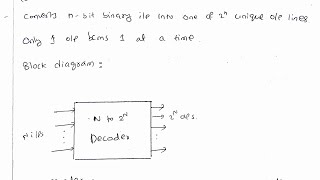 - Converts n-bit binary i/p into one of 2ⁿ unique o/p lines
Only 1 o/p bcms 1 at a time.
Block diagram:
N to 2ᴺ
Decoder
2ᴺ o/ps.